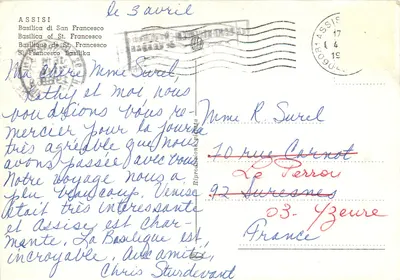 le 3 avril
ASSISI
Basilica di San Francesco
Basilica of St. Francesco
Basilique de St. Francesco
St. Francesco Basilika
Ma chère Mme Surel,
Kathy et moi, nous
voudrions vous re-
mercier pour la journée
très agréable que nous
avons passée avec vous.
Notre voyage nous a
plu beaucoup. Venise
était très intéressante
et Assisy est char-
mante. La Basilique est
incroyable. Avec amitié,
Chris Sturdevant
ASSISI
17
4
19
Mme R. Surel
70 rue Carnot
Le Perrou
92 Suresnes
03-Yzeure
France